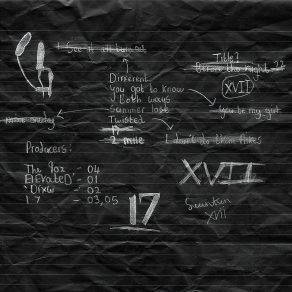 I see it all
Title?
Before the night 22
XVII
Different
You got to know
Both ways
Summer lost
Twisted
17
2 mile
You're my girl
I don't do them fakes
Producers:
The 90z - 04
ElevateD - 01
- 02
17 - 03,05
XVII
17
XVII